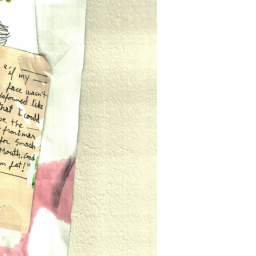 "if my
face wasn't
deformed like
that I could
be the
frontman
for Smash
Mouth, and
I'm fat!"